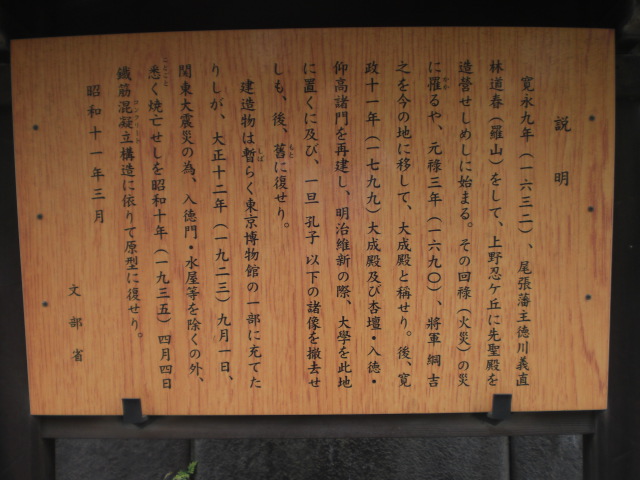 説明
寛永九年（一六三二）、尾張藩主徳川義直
林道春（羅山）をして、上野忍ケ丘に先聖殿を
造営せしめしに始まる。その回祿（火災）の災
に罹るや、元祿三年（一六九〇）、將軍 綱吉
之を今の地に移して、大成殿と稱せり。後、寛
政十一年（一七九九）大成殿及び杏壇・入徳・
仰高諸門を再建し、明治維新の際、大學を此地
に置くに及び、一旦 孔子 以下の諸像を撤去せ
しも、後、舊に復せり。
建造物は暫らく東京博物館の一部に充てた
りしが、大正十二年（一九二三）九月一日、
関東大震災の為、入徳門・水屋等を除くの外、
悉く焼亡せしを昭和十年（一九三五）四月四日
鐵筋混凝立構造に依りて原型に復せり。
昭和十一年三月
文部省